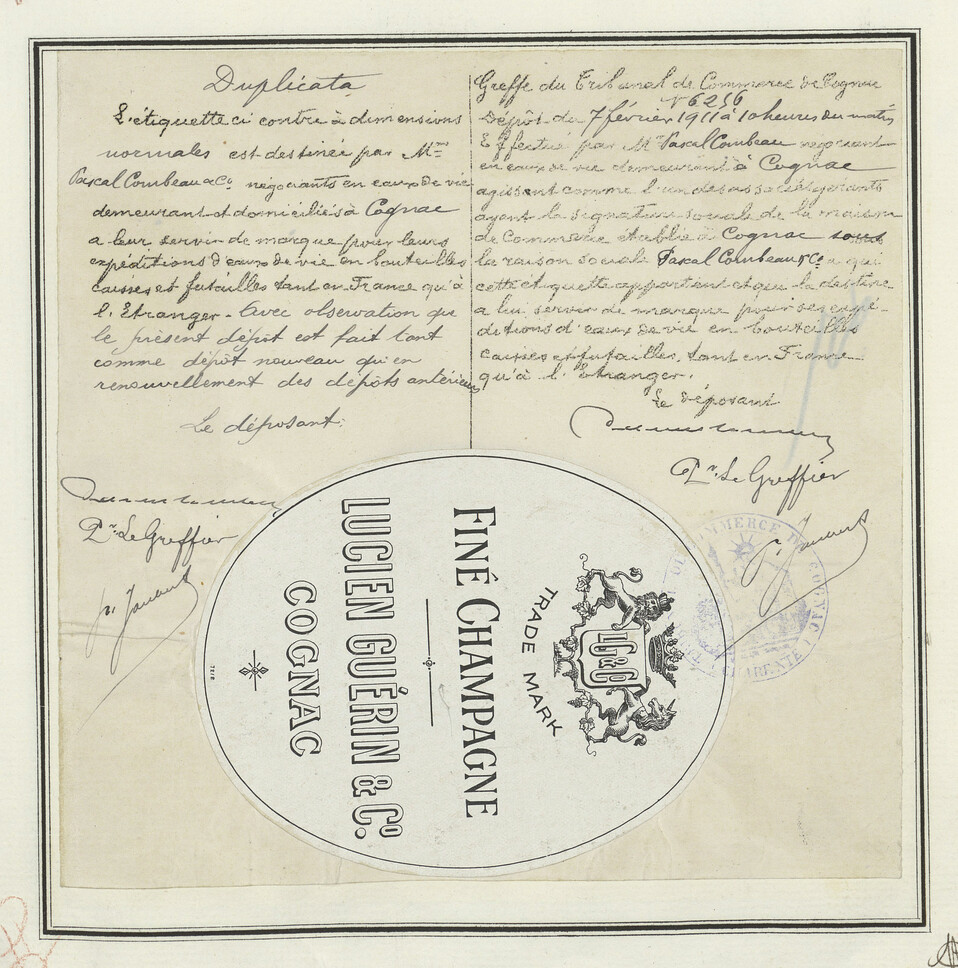 Duplicata
L'étiquette ci contre à dimensions
normales est destinée par M.rs
Pascal Combeau & Co négociants en eaux de vie
demeurant et domiciliés à Cognac
a leur servir de marque pour leurs
expéditions d'eaux de vie en bouteilles
caisses et futailles tant en France qu'à
l'Etranger - Avec observation que
le présent dépôt est fait tant
comme dépôt nouveau qu'en
renouvellement des dépôts antérieurs
Le déposant:
Pr. Le Greffier
Greffe du Tribunal de Commerce de Cognac
No 6256
Dépôt du 7 février 1911 à 10 heures du matin
Effectué par Mr Pascal Combeau négociant
en eaux de vie demeurant à Cognac
agissant comme l'un des associés gérants
ayant la signature sociale de la maison
de Commerce établie à Cognac sous
la raison sociale Pascal Combeau & Co a qui
cette étiquette appartient et qui la destine
a lui servir de marque pour ses expé
ditions d'eaux de vie en bouteilles
caisses et futailles, tant en France
qu'à l'Etranger.
Le déposant
Pr. Le Greffier
COMMERCE DE COGNAC
CHARENTE
LG & Co
TRADE MARK
FINE CHAMPAGNE
LUCIEN GUÉRIN & Co.
COGNAC